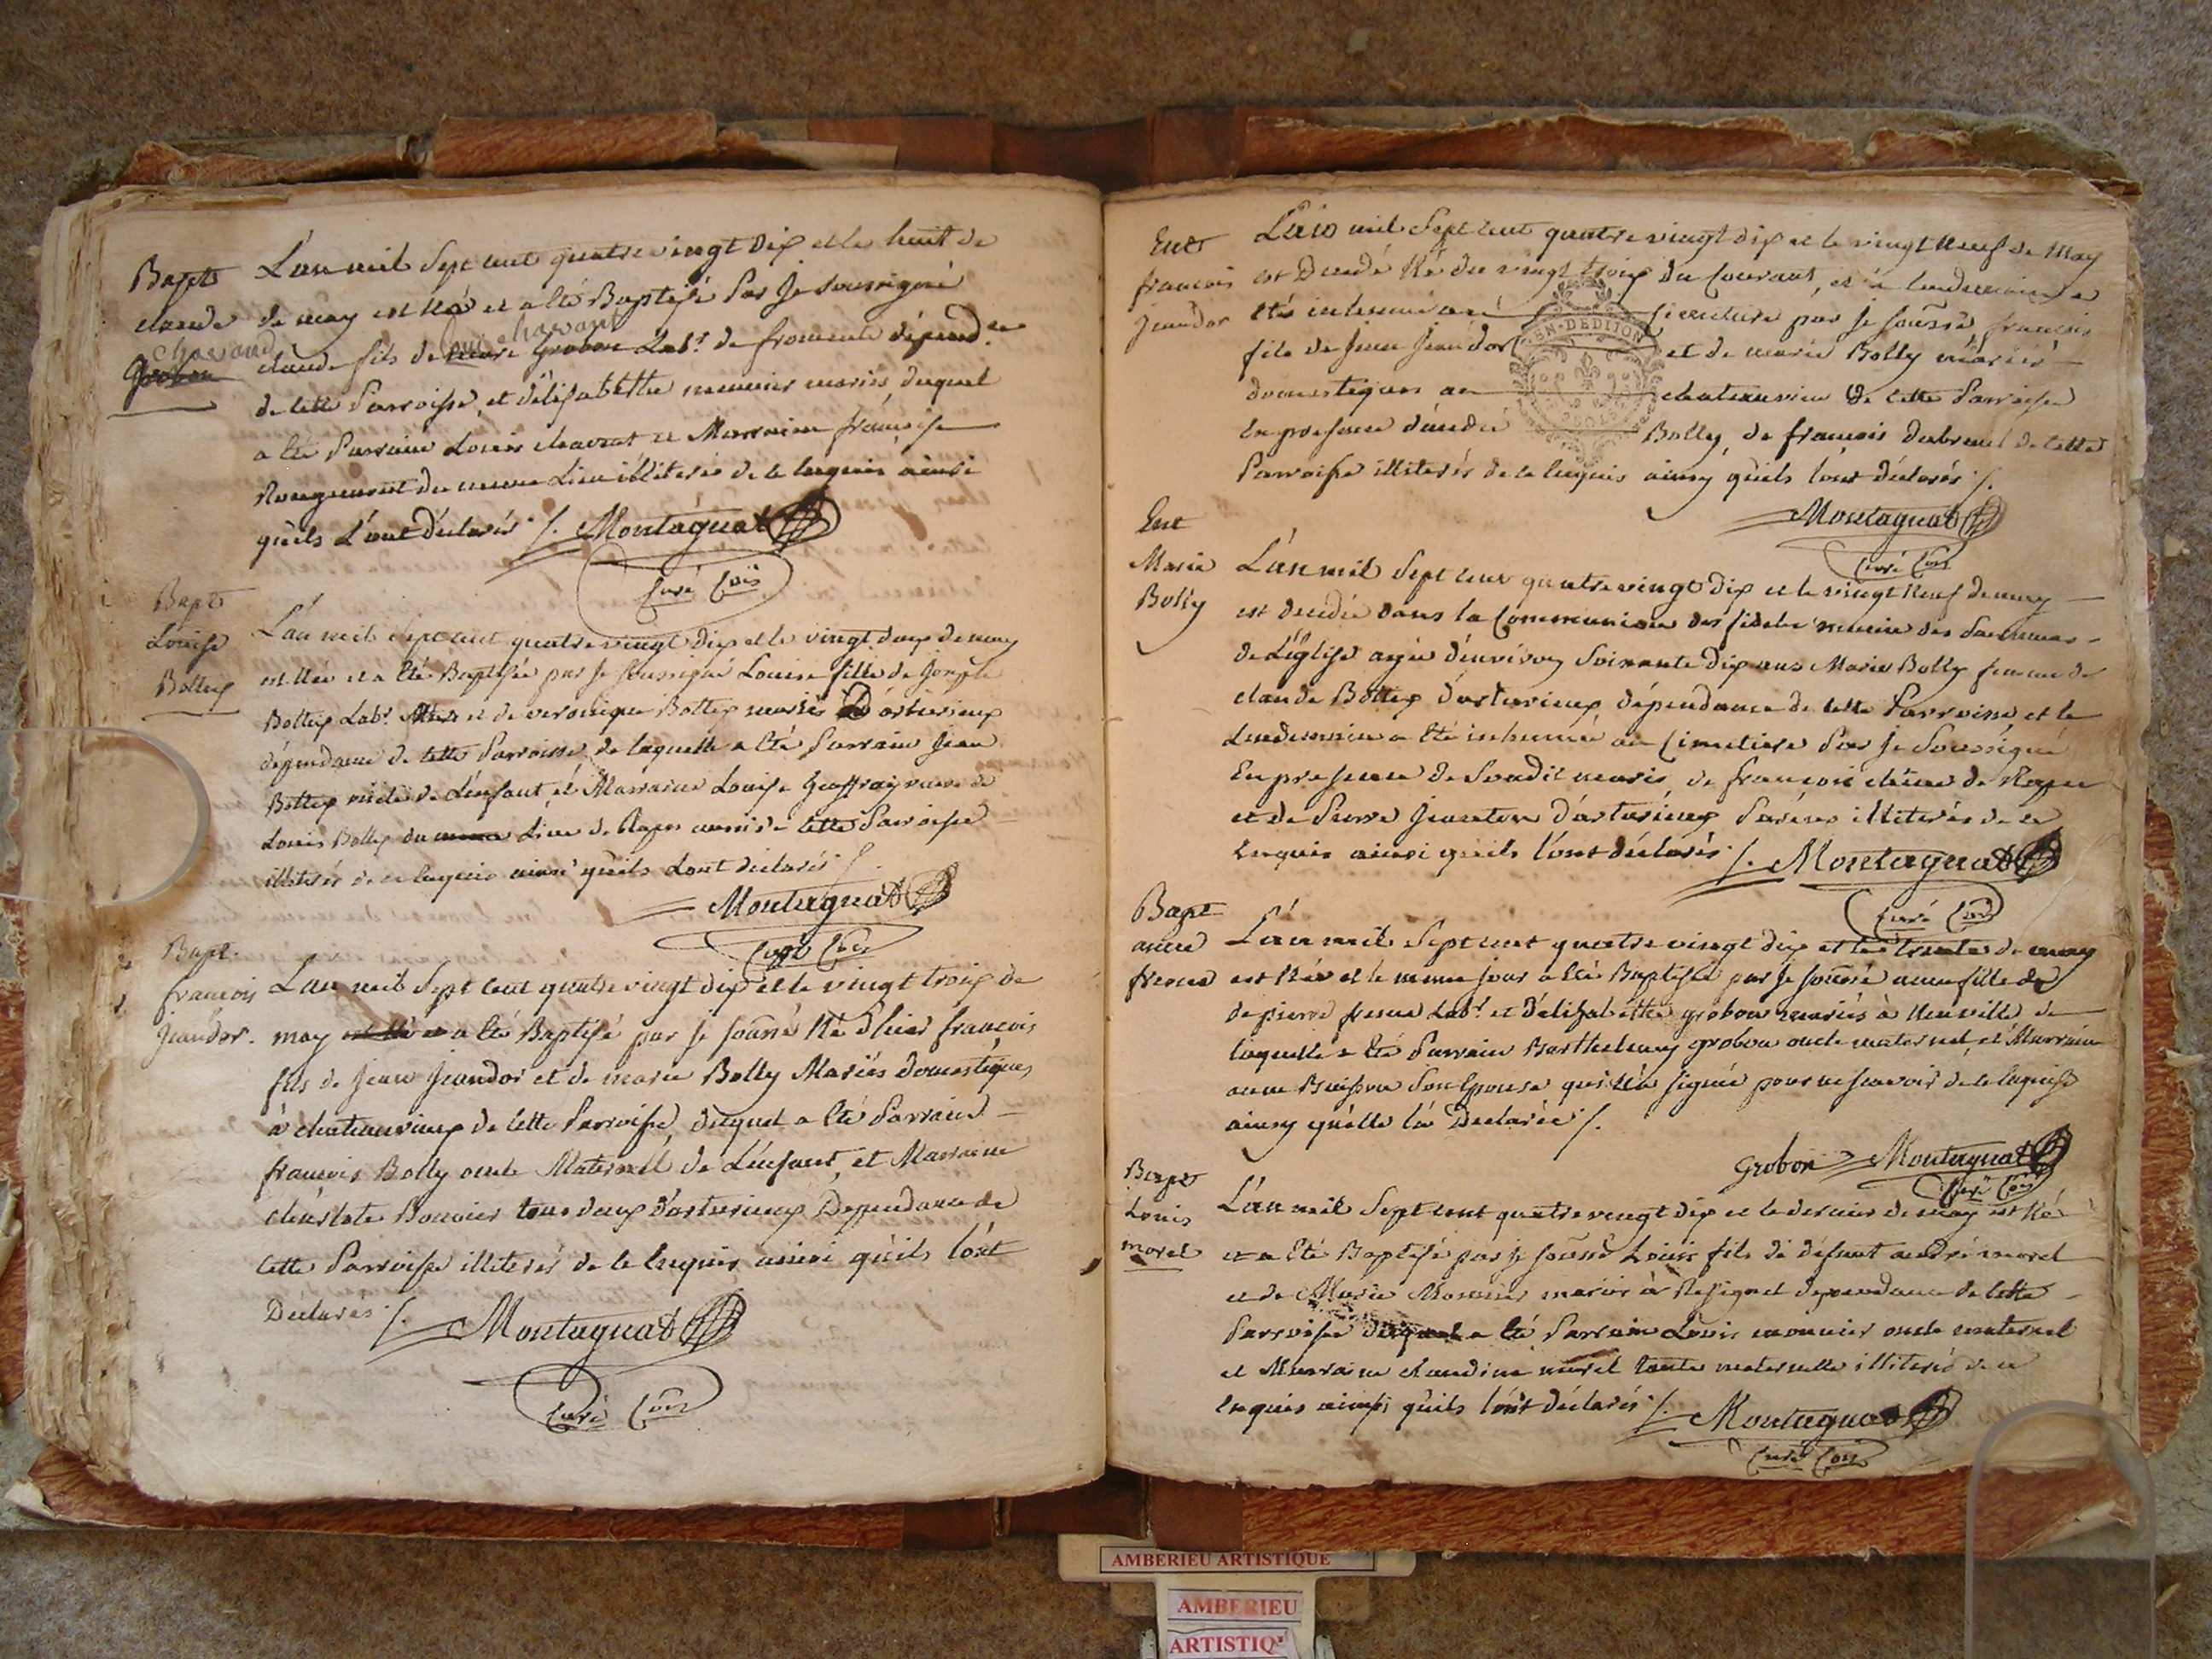 Bapt
claude
chavand
Grobon
L'an mil sept cent quatre vingt dix et le huit de
de may est né et a été Baptisé par Je soussigné
Loui chavant
claude fils de Grobon Labr. de fromente dépend.ce
de cette Parroisse, et d'élisabethe meunier mariés, duquel
a été Parrain Louis chavent et Marraine françoise
Rougemont du meme Lieu illiterés de ce Enquis ainsi
qu'ils L'ont déclarés /. Montagnat
Curé
Bapt
Louise
Bottex
L'an mil sept cent quatre vingt dix et le vingt deux de may
est née et a été Baptisée par Je soussigné Louise fille de Joseph
Bottex Labr. et de veronique Bottex mariés D'arturieux
dépendance de cette Parroisse, de laquelle a été Parrain Jean
Bottex de L'enfant, et Marraine Louise Geoffray veuve de
Louis Bottex du meme Lieu de Rapan aussi de cette Parroisse
illiterés de ce Enquis ainsi qu'ils L'ont déclarés /.
Montagnat
Curé
Bapt.
francois
Jeandor.
L'an mil sept cent quatre vingt dix et le vingt trois de
may est né et a été Baptisé par Je soussé né d'hier francois
fils de Jean Jeandor et de marie Bolly Mariés domestiques
à chateauvieux de cette Parroisse, duquel a été Parrain
francois Bolly oncle Maternel de L'enfant, et Marraine
Bouvier tous deux d'arturieux Dependance de
cette Parroisse illiterés de ce Enquis ainsi qu'ils l'ont
Déclarés /. Montagnat
Curé
Ent
francois
Jeandor
L'an mil sept cent quatre vingt dix et le vingt neuf de May
est Decedé né du vingt trois du Courant, et le lendemain a
été inhumé au cimetiere par Je soussé francois
fils de Jean Jeandor et de marie Bolly mariés
domestiques au chateauvieux de cette Parroisse
En presence d'andré Bolly, de francois dubreuil de cette
Parroisse illiterés de ce Enquis ainsy qu'ils l'ont déclarés /.
Montagnat
Curé
Ent
Marie
Bolly
L'an mil sept cent quatre vingt dix et le vingt neuf de may
est decedée dans la Communion des fideles munie des Sacremens
de L'église agée d'environ soixante dix ans Marie Bolly femme de
claude Bottex d'arturieux dépendance de cette Parroisse et le
Lendemain a été inhumée au Cimetiere par Je Soussigné
En presence de Soudit maris, de francois de Rapan
et de Pierre Jeanton d'arturieux Parens illiterés de ce
Enquis ainsi qu'ils l'ont déclarés /. Montagnat
Curé
Bapt
anne
fresne
L'an mil sept cent quatre vingt dix et le trente de may
est née et le meme jour a été Baptisée par Je soussé anne fille de
de pierre fresne Labr. et D'élisabethe grobon mariés à Neuville de
laquelle a été Parrain Barthelemy grobon oncle maternel, et Marraine
anne Buisson son Epouse qui n'a signée pour ne scavoir de ce Enquise
ainsy qu'elle l'a Declarée /.
Grobon Montagnat
Curé
Bapt
Louis
morel
L'an mil sept cent quatre vingt dix et le dernier de may est né
et a été Baptisé par Je soussé Louis fils de défunt andré morel
et de Marie Monnier mariés à Resignel dependance de cette
Parroisse duquel a été Parrain Louis monnier oncle maternel
et Marraine claudine morel tante maternelle illiterés de ce
Enquis ainsi qu'ils l'ont déclarés /. Montagnat
Curé
AMBERIEU ARTISTIQUE
AMBERIEU
ARTISTIQ